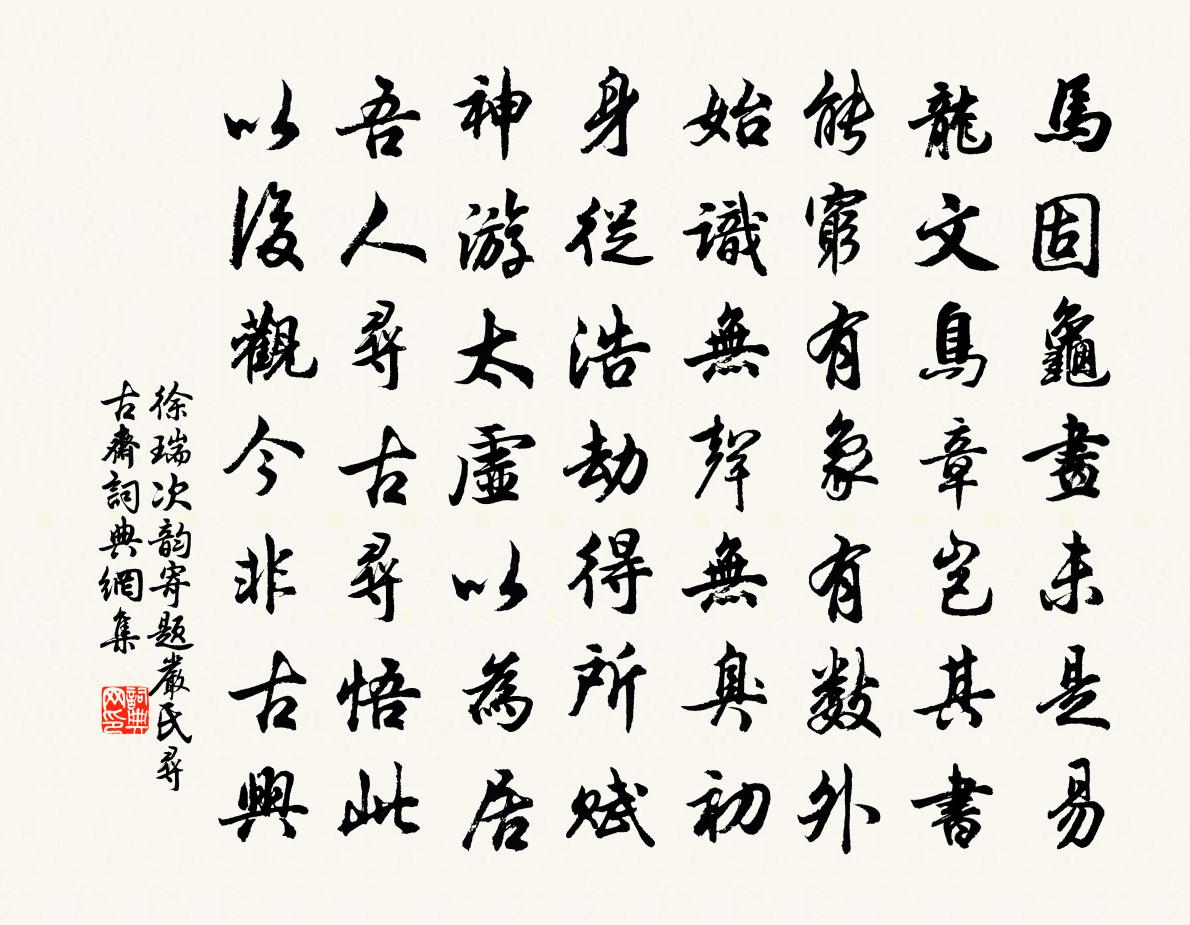 馬固龜畫未是易
龍文鳥章豈其書
能窮有象有數外
始識無聲無臭初
身從浩劫得所賦
神游太虛以為居
吾人尋古尋悟此
以後觀今非古與
徐瑞次韵寄題嚴氏尋
古齋詞典網集
詞典
网印